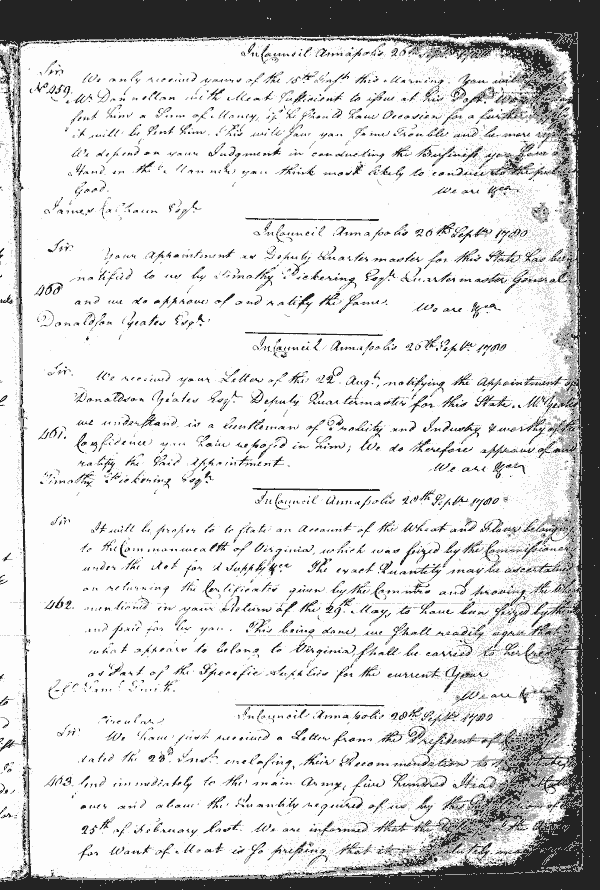 In Council Annapolis 26th Sept. 1780
Sir
No. 459. We only received yours of the 15th Inst. this Morning. You will
Mr. Dannellan with Meat sufficient to issue at his Post. We
sent him a Sum of Money, if he should have Occasion for a further
it will be sent him. This will save you some Trouble and be more
We depend on your Judgment in conducting the Business you have
Hand in the Manner you think most likely to conduce to the public
Good. We are &ca
James Calhoun Esqr.
In Council Annapolis 26th Septr. 1780
Sir
Your Appointment as Deputy Quartermaster for this State has been
notified to us by Timothy Pickering Esqr. Quartermaster General
460
and we do approve of and ratify the same. We are &ca
Donaldson Yeates Esqr.
In Council Annapolis 26th Septr. 1780
Sir.
We received your Letter of the 22d. Augt. notifying the Appointment of
Donaldson Yeates Esqr. Deputy Quartermaster for this State. Mr. Yeates
we understand is a Gentleman of Probity and Industry & worthy of the
461.
Confidence you have reposed in him; We do therefore approve of and
ratify the said appointment. We are &ca
Timothy Pickering Esqr.
In Council Annapolis 28th Septr. 1780
Sir
It will be proper to to state an Account of the Wheat and Flour belonging
to the Commonwealth of Virginia, which was seized by the Commissioners
under the Act for a Supply &ca The exact Quantity may be ascertained
on returning the Certificates given by the Comrs. and proving the
462. mentioned in your Return of the 29th May, to have been seized by them
and paid for by you. This being done, we shall readily agree that
what appears to belong to Virginia shall be carried to her Credit
as Part of the Specific Supplies for the current Year
We are &ca
Colo. Saml. Smith.
In Council Annapolis 28th Septr. 1780
Circular
Sir
We have just received a Letter from the President of
dated the 22d. Inst. enclosing their Recommendation to
463. send immediately to the main Army, five hundred Head
over and above the Quantity required of us, by the
25th of February last. We are informed that the
for Want of Meat is so pressing, that it